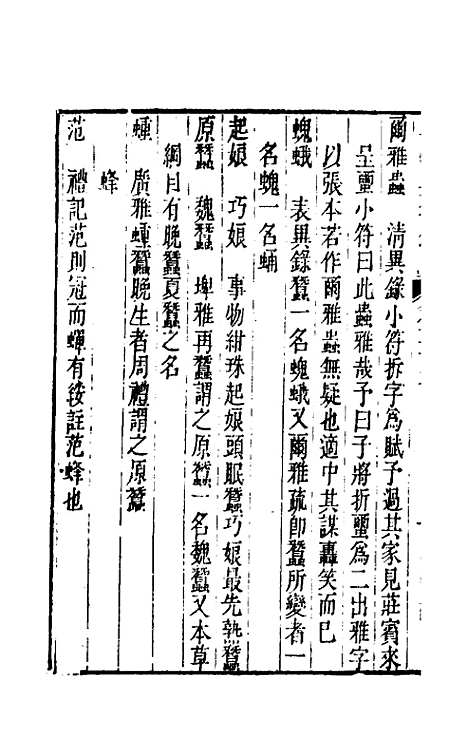 爾雅蟲　清異錄小符拆字爲賦予過其家見莊賓來
呈璽小符曰此蟲雅哉予曰子將折璽爲二出雅字
以張本若作爾雅蟲無疑也適中其謀轟笑而已
螝蛾　表異錄蠶一名螝蛾又爾雅疏卽蠶所變者一
名螝一名蛹
起娘　巧娘　事物紺珠起娘頭眠蠶巧娘最先熟蠶
原蠶　魏蠶　埤雅再蠶謂之原蠶一名魏蠶又本草
綱目有晚蠶夏蠶之名
𧐖　廣雅𧐖蠶晚生者周禮謂之原蠶
蜂
范　禮記范則冠而蟬有緌註范蜂也